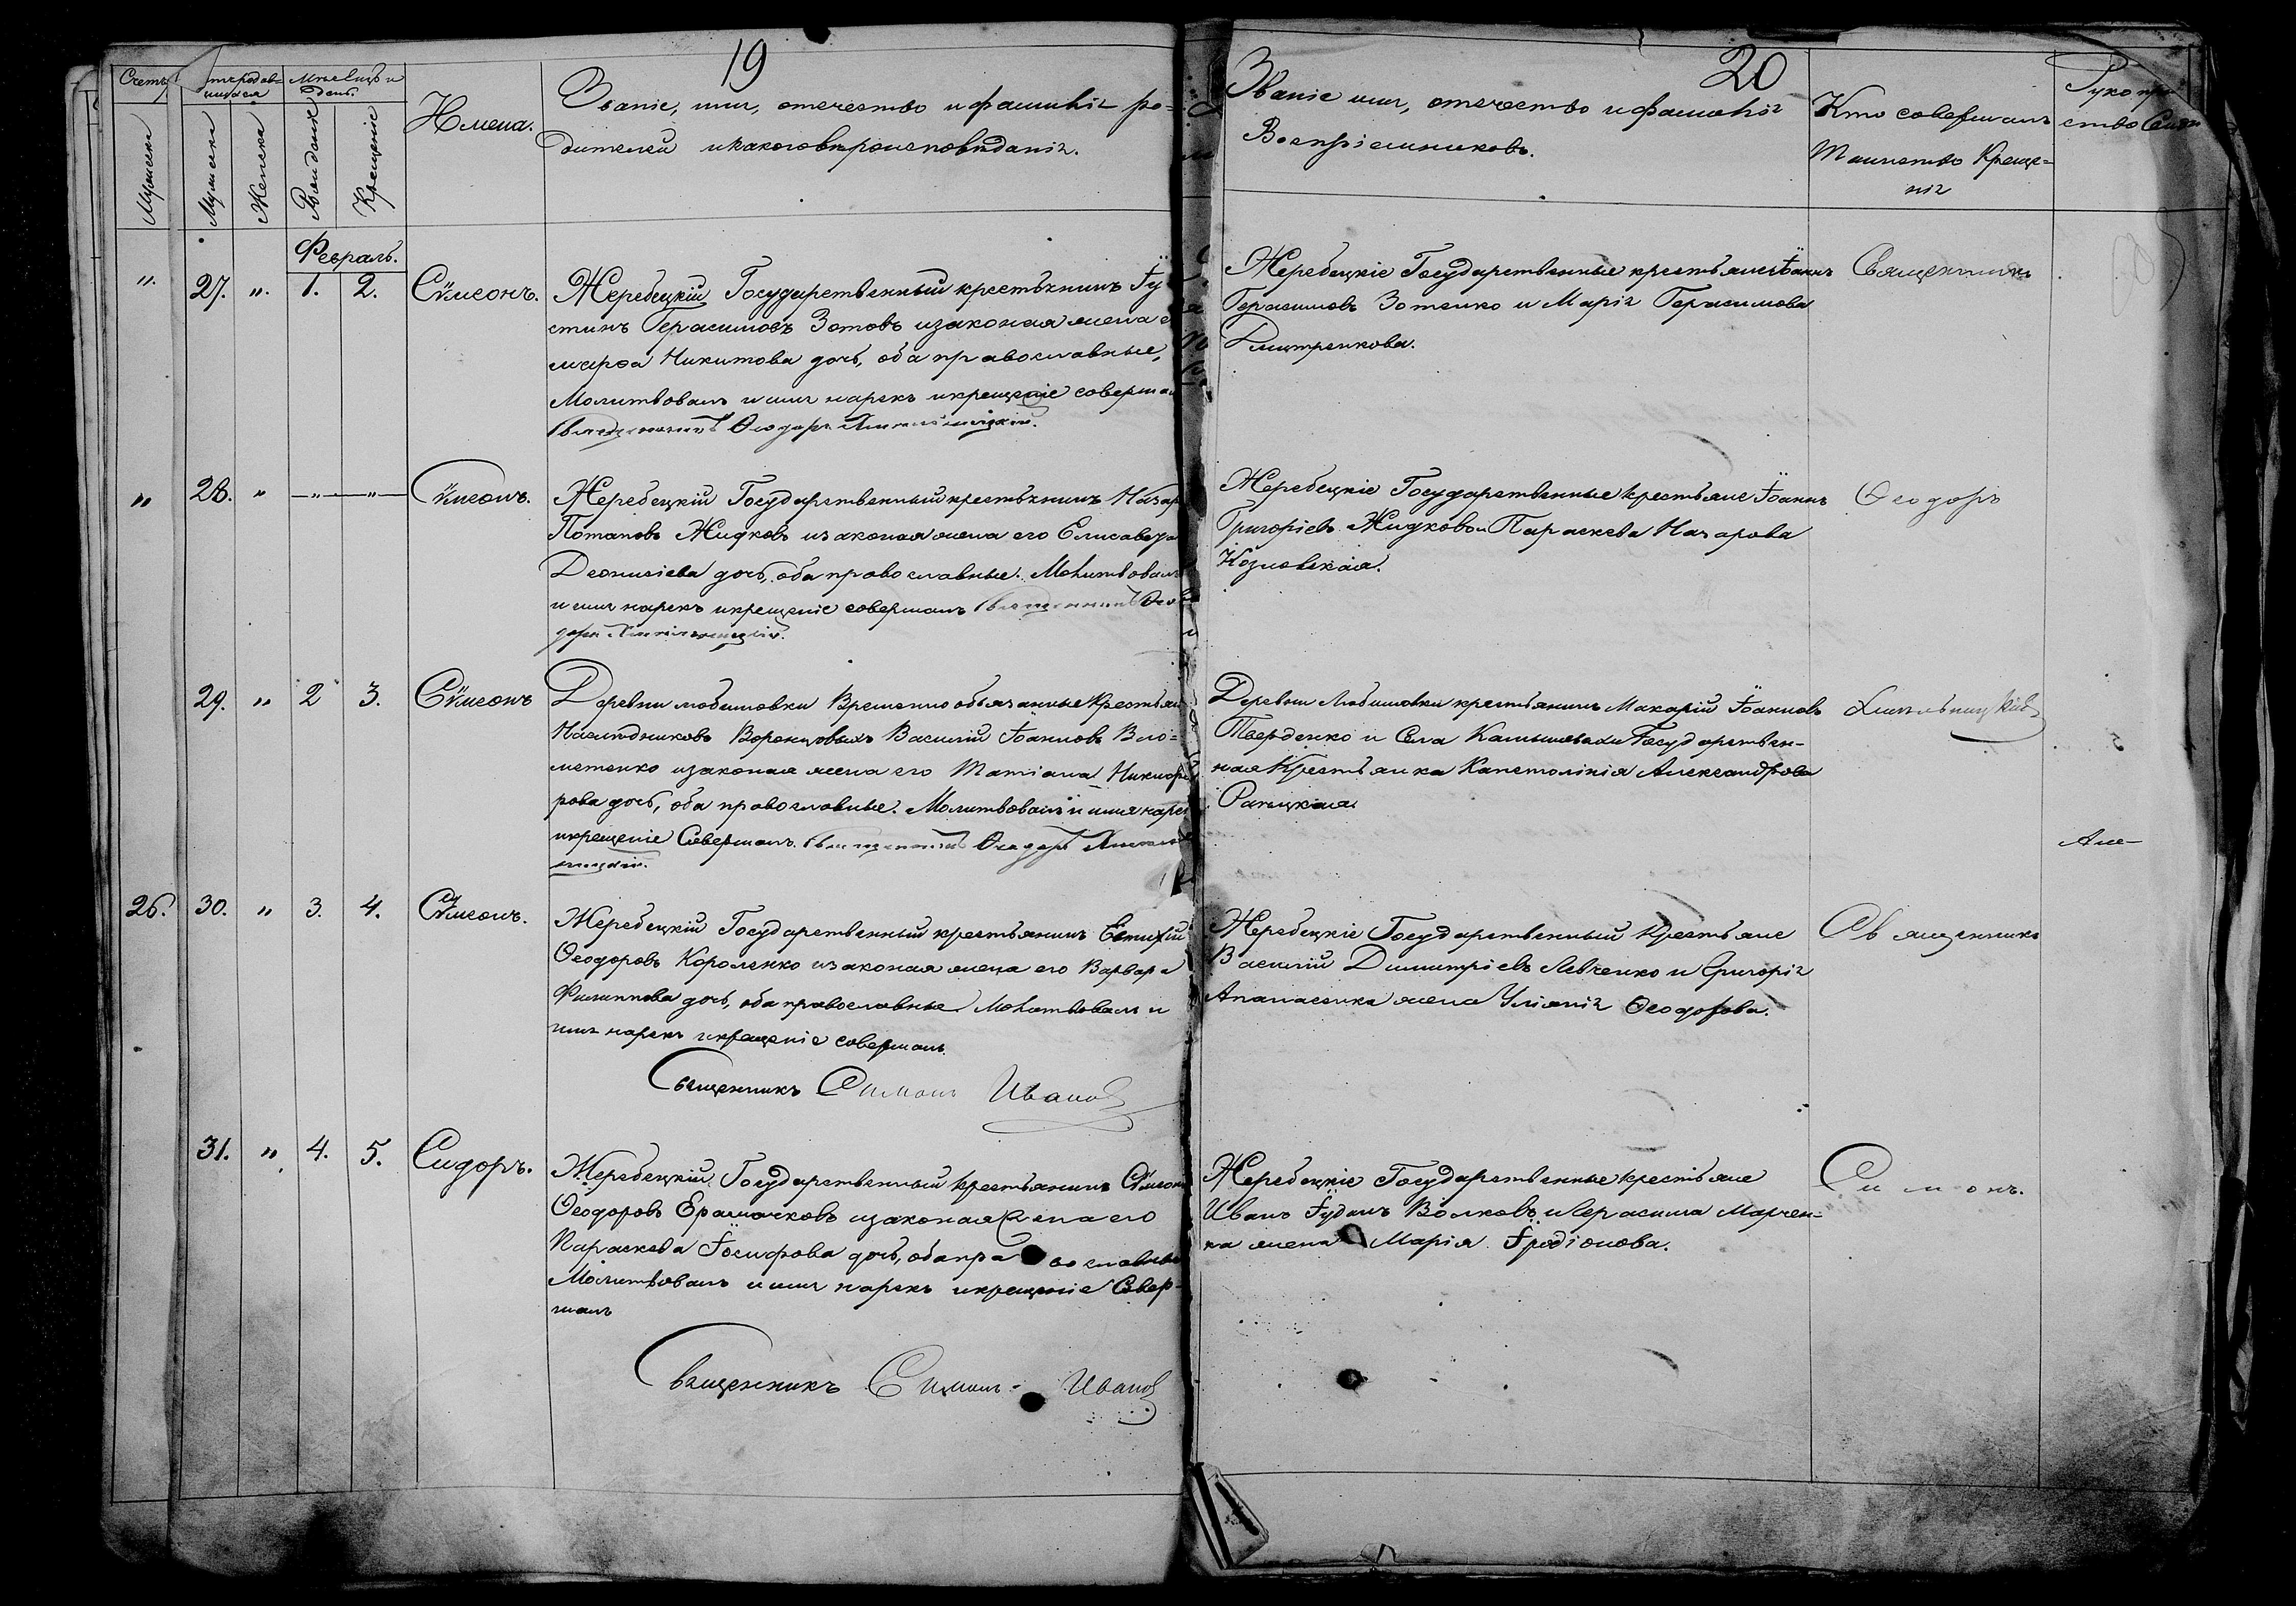 19
Счетъ
Мѣсяцъ и
день.
Мужска
Мужска
Женска
Рожденія
Крещеніе
Имена.
Званіе, имя, отечество и фамилія ро-
дителей и какого вѣроисповѣданія.
Февраль.
" 27. " 1. 2. Сѵмеонъ.
Жеребецкій Государственный крестьянинъ Іу
стинъ Герасимовъ Зотовъ и законая жена е
марѳа Никитова дочь, оба православные,
Молитвовалъ и имя нарекъ и крещеніе соверша
Священникъ Ѳеодоръ Хмельницкій.
" 28. " " " Сѵмеонъ.
Жеребецкій Государственный крестьянинъ Назар
Потаповъ Жидковъ и законая жена его Елисавета
Деонисіева дочь, оба православные. Молитвовалъ
и имя нарекъ и крещеніе совершалъ Священникъ Ѳео
доръ Хмельницкій.
29. " 2 3. Сѵмеонъ
Деревни любимовки Временно обязанные Крестьян
Наслѣдниковъ Воронцовыхъ Василій Іоанновъ
и законая жена его Татіана Никифо
рова дочь, оба православные. Молитвовалъ и имя наре
и крещеніе Совершалъ. Священникъ Ѳеодоръ Хмель
ницкій.
26. 30. " 3. 4. Сѵмеонъ.
Жеребецкій Государственный крестьянинъ Евтихій
Ѳеодоровъ Короленко и законая жена его Варвара
Филиппова дочь, оба православные Молитвовалъ и
имя нарекъ и крещеніе совершалъ.
Священникъ Симонъ Иванов
31. " 4. 5. Сидоръ.
Жеребецкій Государственный крестьянинъ Сѵмеонъ
Ѳеодоровъ Ермачковъ и законая жена его
Параскева Іосифова дочь, оба пра во славные
Молитвовалъ и имя нарекъ и крещеніе Совер-
шалъ
Священникъ Симонъ Иванов
20
Званіе имя, отечество и фамилія
Воспріемниковъ.
Кто совершалъ
Таинство Креще-
нія
Рукопри
ство
Жеребецкіе Государственные крестьяне Іоаннъ
Герасимовъ Зотенко и Марія Герасимова
Дмитренкова.
Священникъ
Жеребецкіе Государственные крестьяне Іоаннъ
Григоріевъ Жидковъ и Параскева Назарова
Козловская.
Ѳеодоръ
Деревни Любимовки крестьянинъ Макарій Іоанновъ
Тверденко и Села Камышевахи Государствен-
ная Крестьянка Капетолинія Александрова
Ракицкая
Хмельницкій
Жеребецкіе Государственный Крестьяне
Василій Димитріевъ Левченко и Григорія
Апанасенка жена Уліянія Ѳеодорова.
Священникъ
Жеребецкіе Государственные крестьяне
Иванъ Іудинъ Волковъ и Герасима Марчен-
ка жена Марія Іродіонова.
Симонъ.